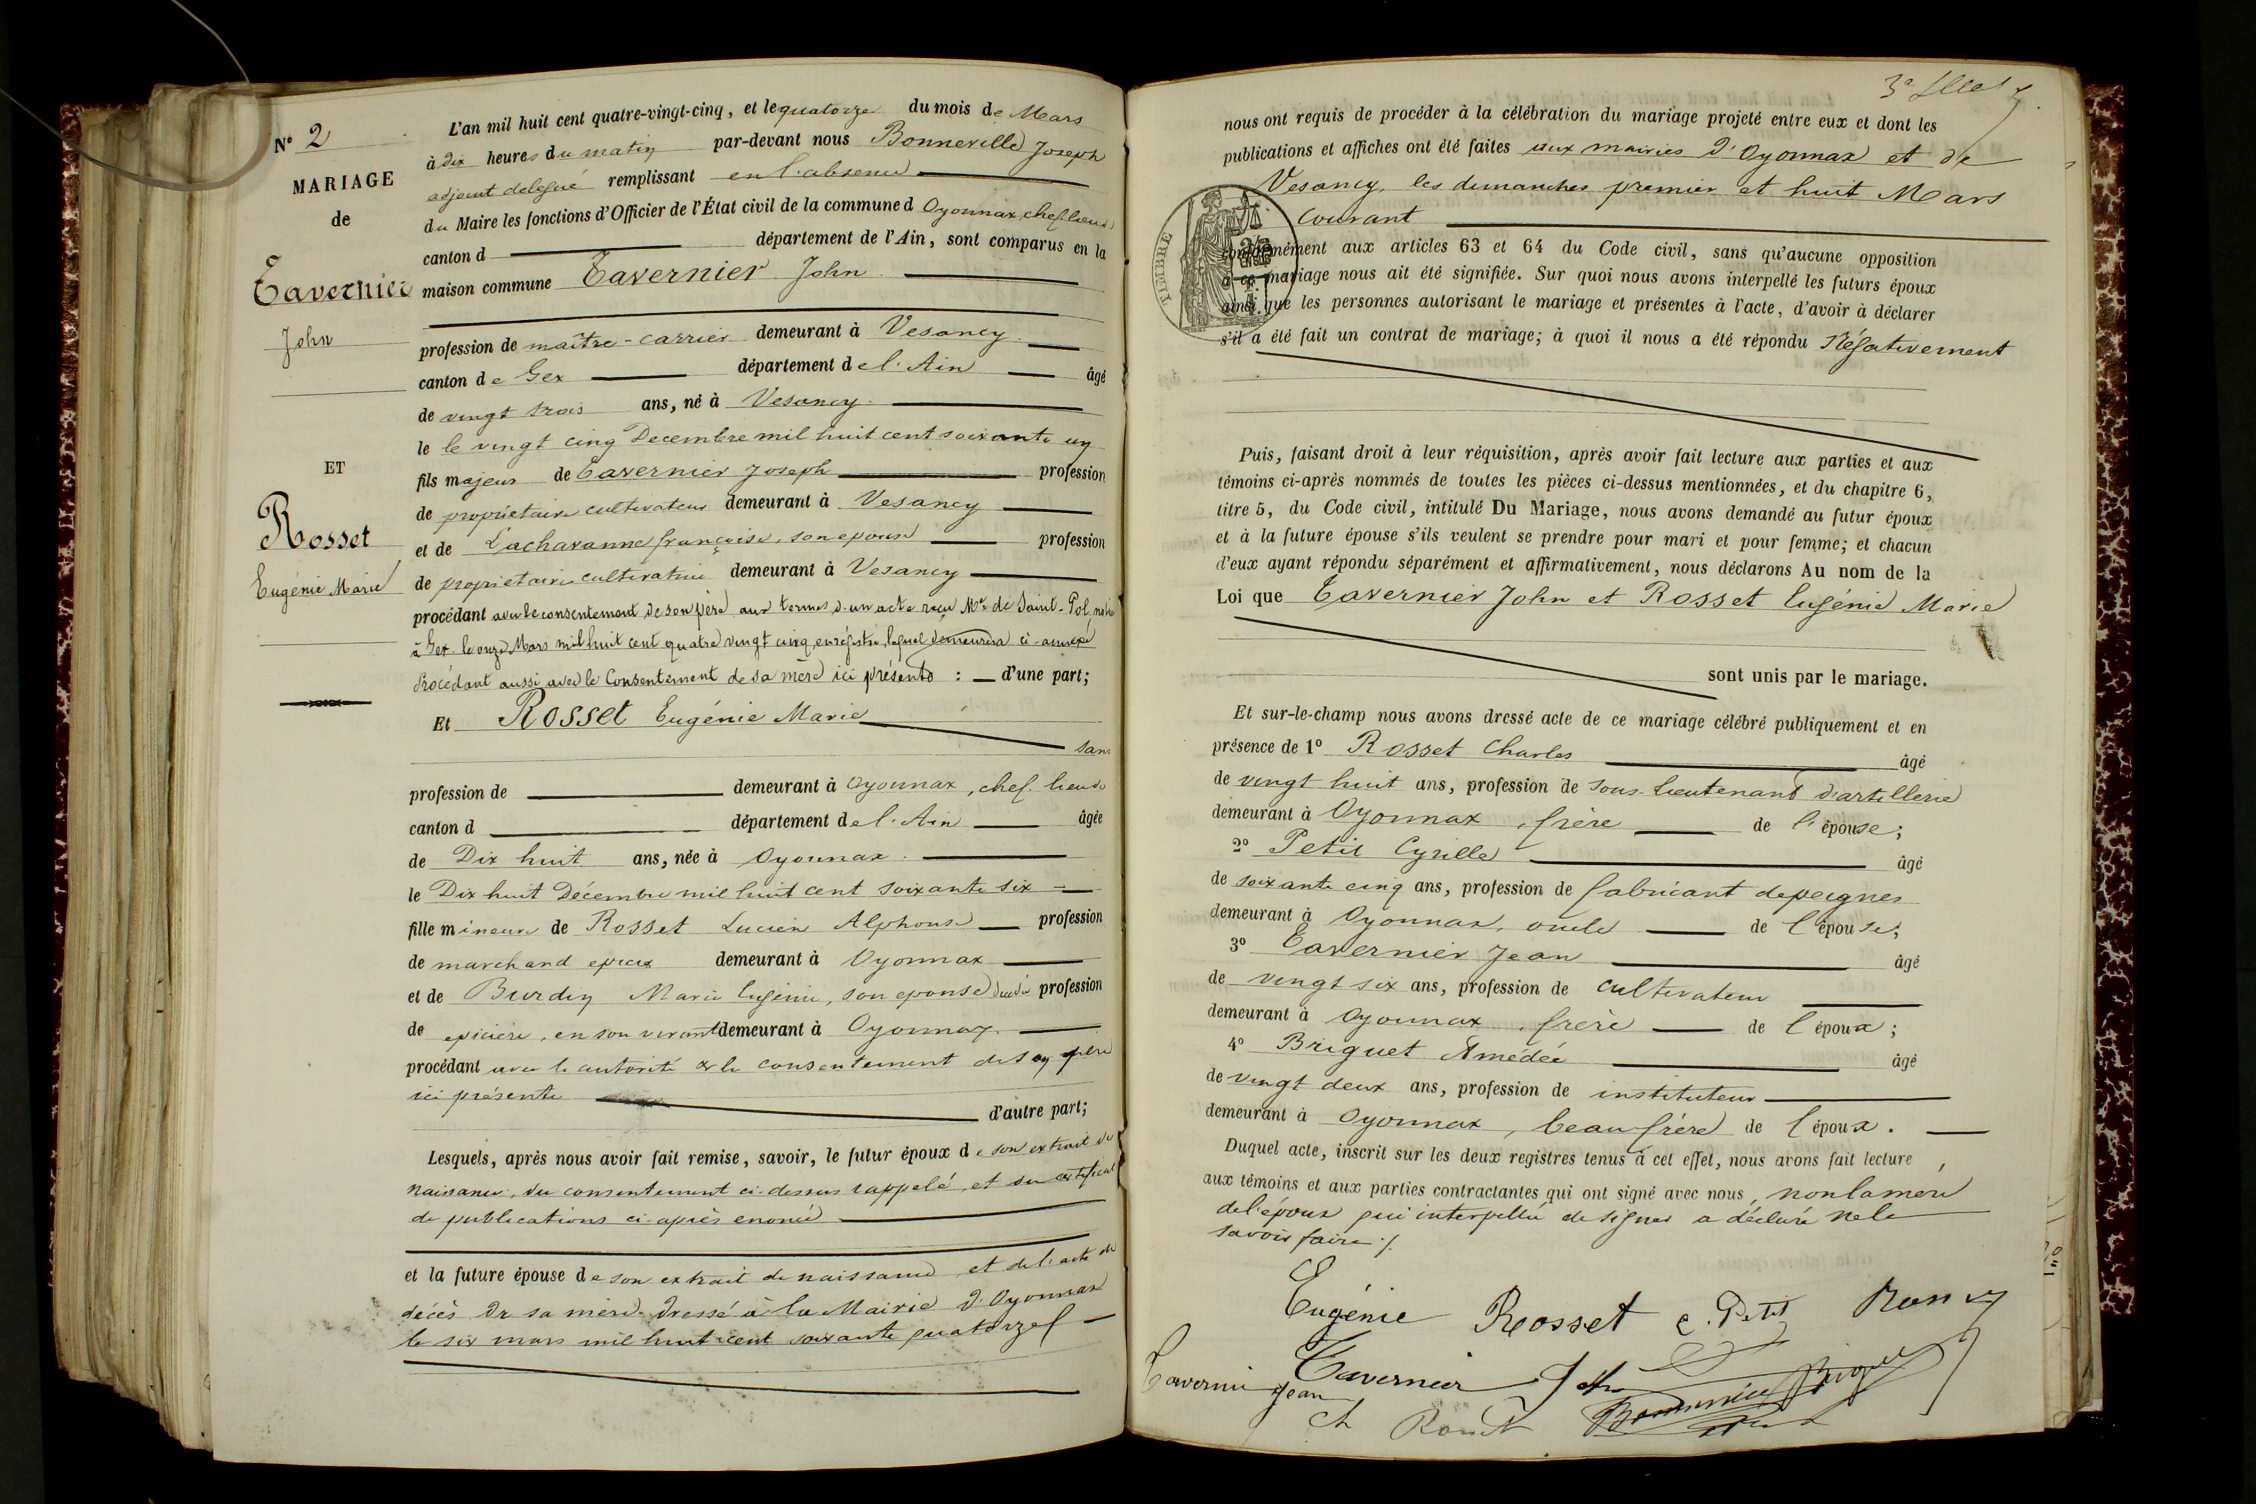 N° 2
MARIAGE
de
Tavernier
John
ET
Rosset
Eugénie Marie
L'an mil huit cent quatre-vingt-cinq, et le quatorze du mois de Mars
à dix heures du matin par-devant nous Bonneville Joseph
adjoint délégué remplissant en l'absence
du Maire les fonctions d'Officier de l'État civil de la commune d Oyonnax, chef lieu de
canton d département de l'Ain, sont comparus en la
maison commune Tavernier John
profession de maître-carrier demeurant à Vesancy
canton de Gex département de l'Ain âgé
de vingt trois ans, né à Vesancy
le le vingt cinq Decembre mil huit cent soixante un
fils majeur de Tavernier Joseph profession
de propriétaire cultivateur demeurant à Vesancy
et de Lacharanne françoise, son epouse profession
de propriétaire cultivatrice demeurant à Vesancy
procédant avec le consentement de son père aux termes d'un acte reçu Me de Saint-Pol notaire
à Gex le onze Mars mil huit cent quatre vingt cinq, enrégistré, lequel demeurera ci-annexé
Procédant aussi avec le Consentement de sa mère ici présente : d'une part;
Et Rosset Eugénie Marie
sans
profession de demeurant à Oyonnax, chef. lieu de
canton d département de l'Ain âgée
de Dix huit ans, née à Oyonnax
le Dix huit Décembre mil huit cent soixante six
fille mineure de Rosset Lucien Alphonse profession
de marchand epicier demeurant à Oyonnax
et de Burdin Marie Eugénie, son epouse décédée profession
de epicière, en son vivant demeurant à Oyonnax
procédant avec le autorité & le consentement de son père
ici présente d'autre part;
Lesquels, après nous avoir fait remise, savoir, le futur époux de son extrait de
naissance, du consentement ci-dessus rappelé, et du certificat
de publications ci-après enoncé
et la future épouse de son extrait de naissance et de l'acte de
décès de sa mère dressé à la Mairie d'Oyonnax
le six mars mil huit cent soixante quatorze
nous ont requis de procéder à la célébration du mariage projeté entre eux et dont les
publications et affiches ont été faites aux mairies d'Oyonnax et de
Vesancy, les dimanches premier et huit Mars
courant
conformément aux articles 63 et 64 du Code civil, sans qu'aucune opposition
à ce mariage nous ait été signifiée. Sur quoi nous avons interpellé les futurs époux
ainsi que les personnes autorisant le mariage et présentes à l'acte, d'avoir à déclarer
s'il a été fait un contrat de mariage; à quoi il nous a été répondu Négativement
Puis, faisant droit à leur réquisition, après avoir fait lecture aux parties et aux
témoins ci-après nommés de toutes les pièces ci-dessus mentionnées, et du chapitre 6,
titre 5, du Code civil, intitulé Du Mariage, nous avons demandé au futur époux
et à la future épouse s'ils veulent se prendre pour mari et pour femme; et chacun
d'eux ayant répondu séparément et affirmativement, nous déclarons Au nom de la
Loi que Tavernier John et Rosset Eugénie Marie
sont unis par le mariage.
Et sur-le-champ nous avons dressé acte de ce mariage célébré publiquement et en
présence de 1° Rosset Charles âgé
de vingt huit ans, profession de sous-lieutenant d'artillerie
demeurant à Oyonnax, frère de l'épouse;
2° Petit Cyrille âgé
de soixante cinq ans, profession de fabricant de peignes
demeurant à Oyonnax, oncle de l'épouse;
3° Tavernier Jean âgé
de vingt six ans, profession de cultivateur
demeurant à Oyonnax, frère de l'époux;
4° Briguet Amédée âgé
de vingt deux ans, profession de instituteur
demeurant à Oyonnax, beau-frère de l'époux.
Duquel acte, inscrit sur les deux registres tenus à cet effet, nous avons fait lecture
aux témoins et aux parties contractantes qui ont signé avec nous, non la mère
de l'époux qui interpellée de signer a déclaré ne le
savoir faire ./.
TIMBRE
Eugénie Rosset C. Petit
Tavernier John
Tavernier Jean
Ch Rosset